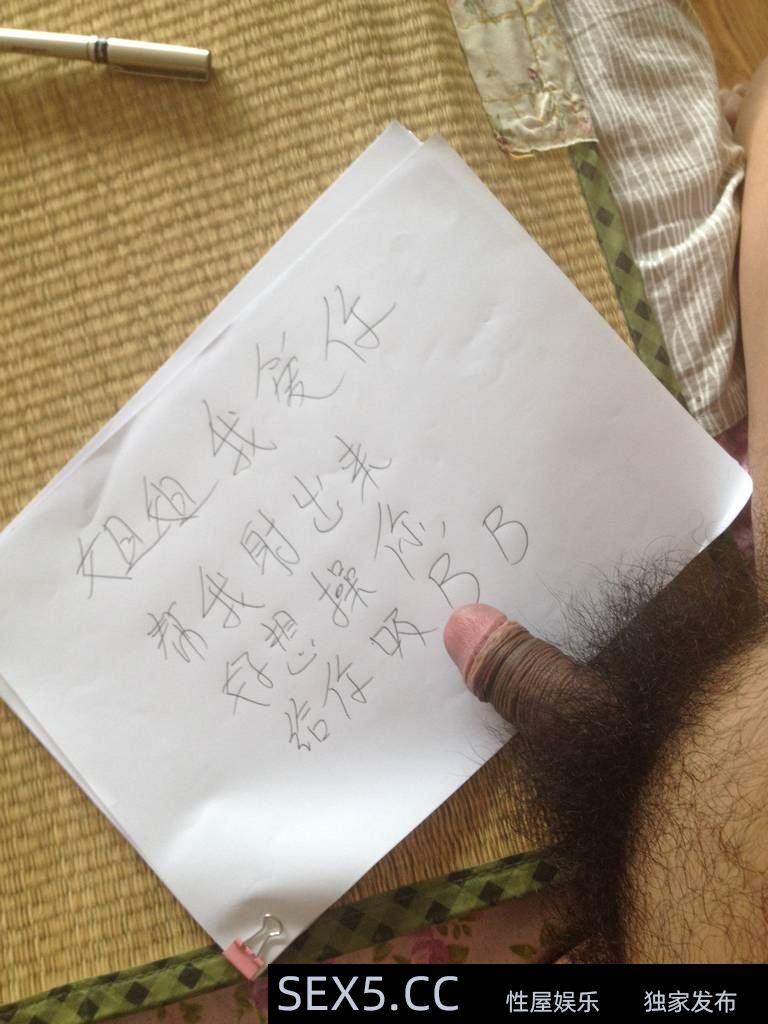 姐姐我爱你
帮我射出来
好想操你
给你吸BB
SEX5.CC 性屋娱乐 独家发布